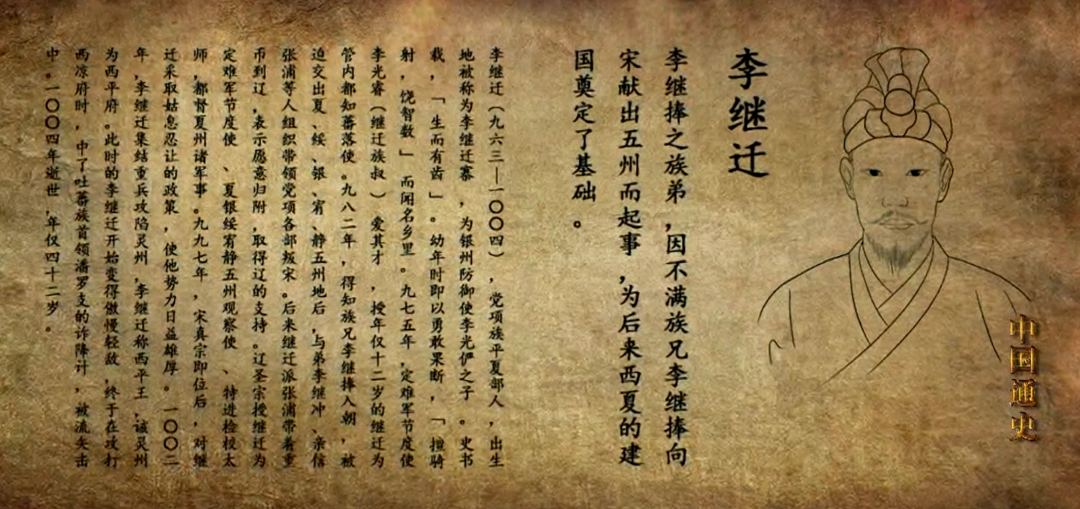 李继迁
李继捧之族弟,因不满族兄李继捧向
宋献出五州而起事,为后来西夏的建
国奠定了基础。
李继迁(九六三—一〇〇四),党项族平夏部人,出生
地被称为李继迁寨,为银州防御使李光俨之子。史书
载,「生而有齿」。幼年时即以勇敢果断,「擅骑
射,饶智数」而闻名乡里。九七五年,定难军节度使
李光睿(继迁族叔)爱其才,授年仅十二岁的继迁为
管内都知蕃落使。九八二年,得知族兄李继捧入朝,被
迫交出夏、绥、银、宥、静五州地后,与弟李继冲、亲信
张浦等人组织带领党项各部叛宋。后来继迁派张浦带着重
币到辽,表示愿意归附,取得辽的支持。辽圣宗授继迁为
定难军节度使、夏银绥宥静五州观察使、特进检校太
师,都督夏州诸军事。九九七年,宋真宗即位后,对继
迁采取姑息忍让的政策,使他势力日益雄厚。一〇〇二
年,李继迁集结重兵攻陷灵州,李继迁称西平王,该灵州
为西平府。此时的李继迁开始变得傲慢轻敌,终于在攻打
西凉府时,中了吐蕃族首领潘罗支的诈降计,被流矢击
中。一〇〇四年逝世,年仅四十二岁。
中国通史